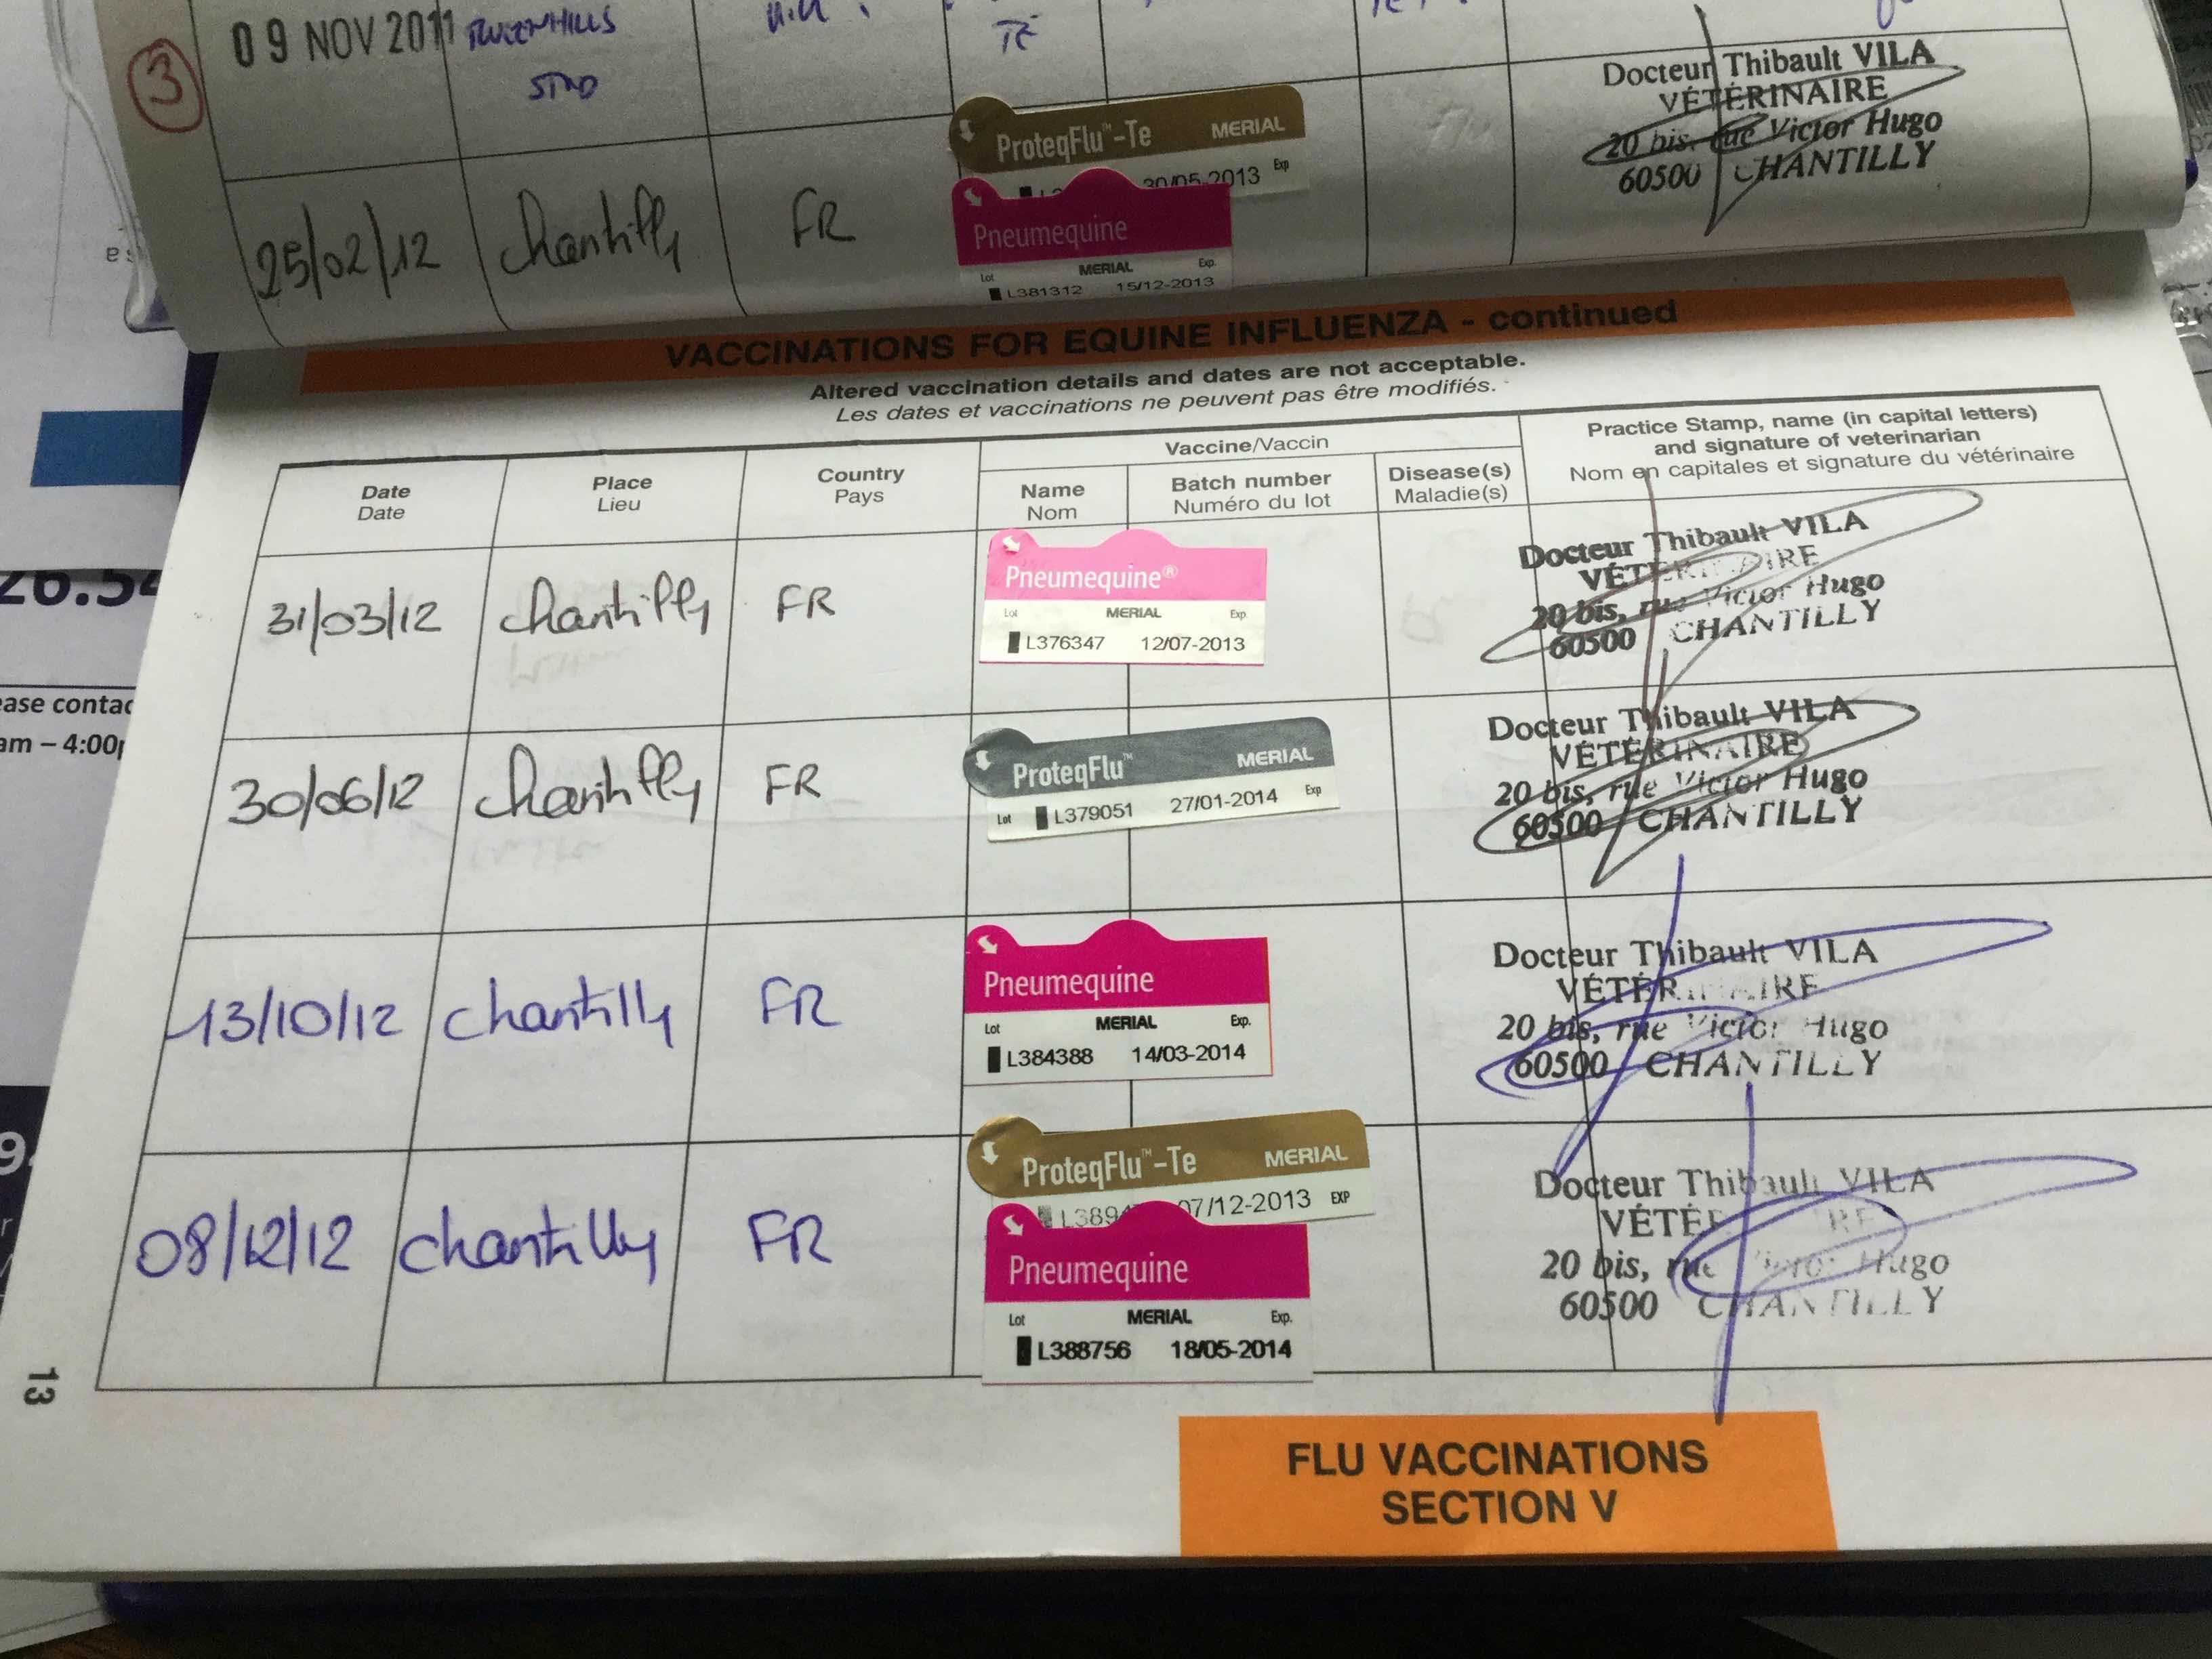 3
09 NOV 2011
STUD
TE
25/02/12 Chantilly FR
ProteqFlu™-Te MERIAL
30/05-2013 Exp
Pneumequine
Lot MERIAL Exp.
L381312 15/12-2013
Docteur Thibault VILA
VÉTÉRINAIRE
20 bis, rue Victor Hugo
60500 CHANTILLY
VACCINATIONS FOR EQUINE INFLUENZA - continued
Altered vaccination details and dates are not acceptable.
Les dates et vaccinations ne peuvent pas être modifiés.
Date
Date
Place
Lieu
Country
Pays
Vaccine/Vaccin
Name
Nom
Batch number
Numéro du lot
Disease(s)
Maladie(s)
Practice Stamp, name (in capital letters)
and signature of veterinarian
Nom en capitales et signature du vétérinaire
31/03/12 Chantilly FR
Pneumequine®
Lot MERIAL Exp.
L376347 12/07-2013
Docteur Thibault VILA
VÉTÉRINAIRE
20 bis, rue Victor Hugo
60500 CHANTILLY
30/06/12 Chantilly FR
ProteqFlu™ MERIAL
Lot L379051 27/01-2014 Exp
Docteur Thibault VILA
VÉTÉRINAIRE
20 bis, rue Victor Hugo
60500 CHANTILLY
13/10/12 Chantilly FR
Pneumequine
Lot MERIAL Exp.
L384388 14/03-2014
Docteur Thibault VILA
VÉTÉRINAIRE
20 bis, rue Victor Hugo
60500 CHANTILLY
08/12/12 Chantilly FR
ProteqFlu™-Te MERIAL
07/12-2013 EXP
Pneumequine
Lot MERIAL Exp.
L388756 18/05-2014
Docteur Thibault VILA
VÉTÉRINAIRE
20 bis, rue Victor Hugo
60500 CHANTILLY
13
FLU VACCINATIONS
SECTION V
26.54
am – 4:00